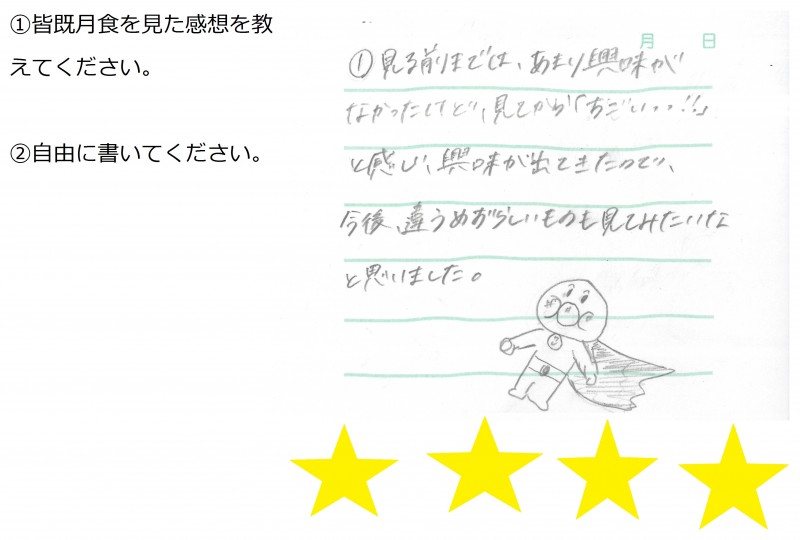 ①皆既月食を見た感想を教
えてください。
②自由に書いてください。
月 日
①見る前までは、あまり興味が
なかったけど、見てから「すごいっっ!!」
と感じ、興味が出てきたので、
今後、違うめずらしいものも見てみたいな
と思いました。